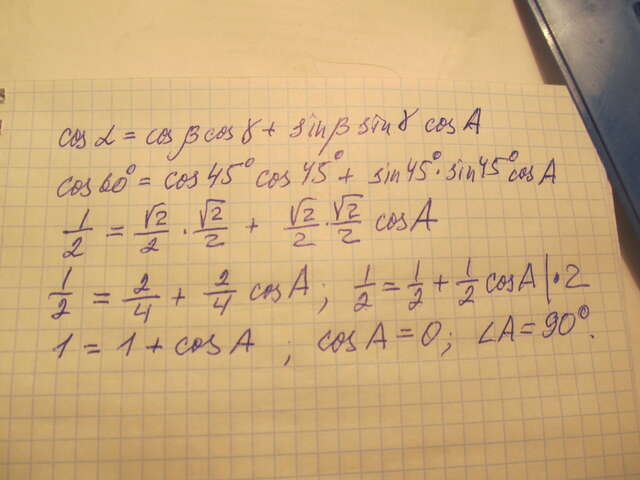 cos α = cos β cos γ + sin β sin γ cos A
cos 60° = cos 45° cos 45° + sin 45° · sin 45° cos A
1/2 = √2/2 · √2/2 + √2/2 · √2/2 cos A
1/2 = 2/4 + 2/4 cos A ; 1/2 = 1/2 + 1/2 cos A | · 2
1 = 1 + cos A ; cos A = 0 ; ∠A = 90°.